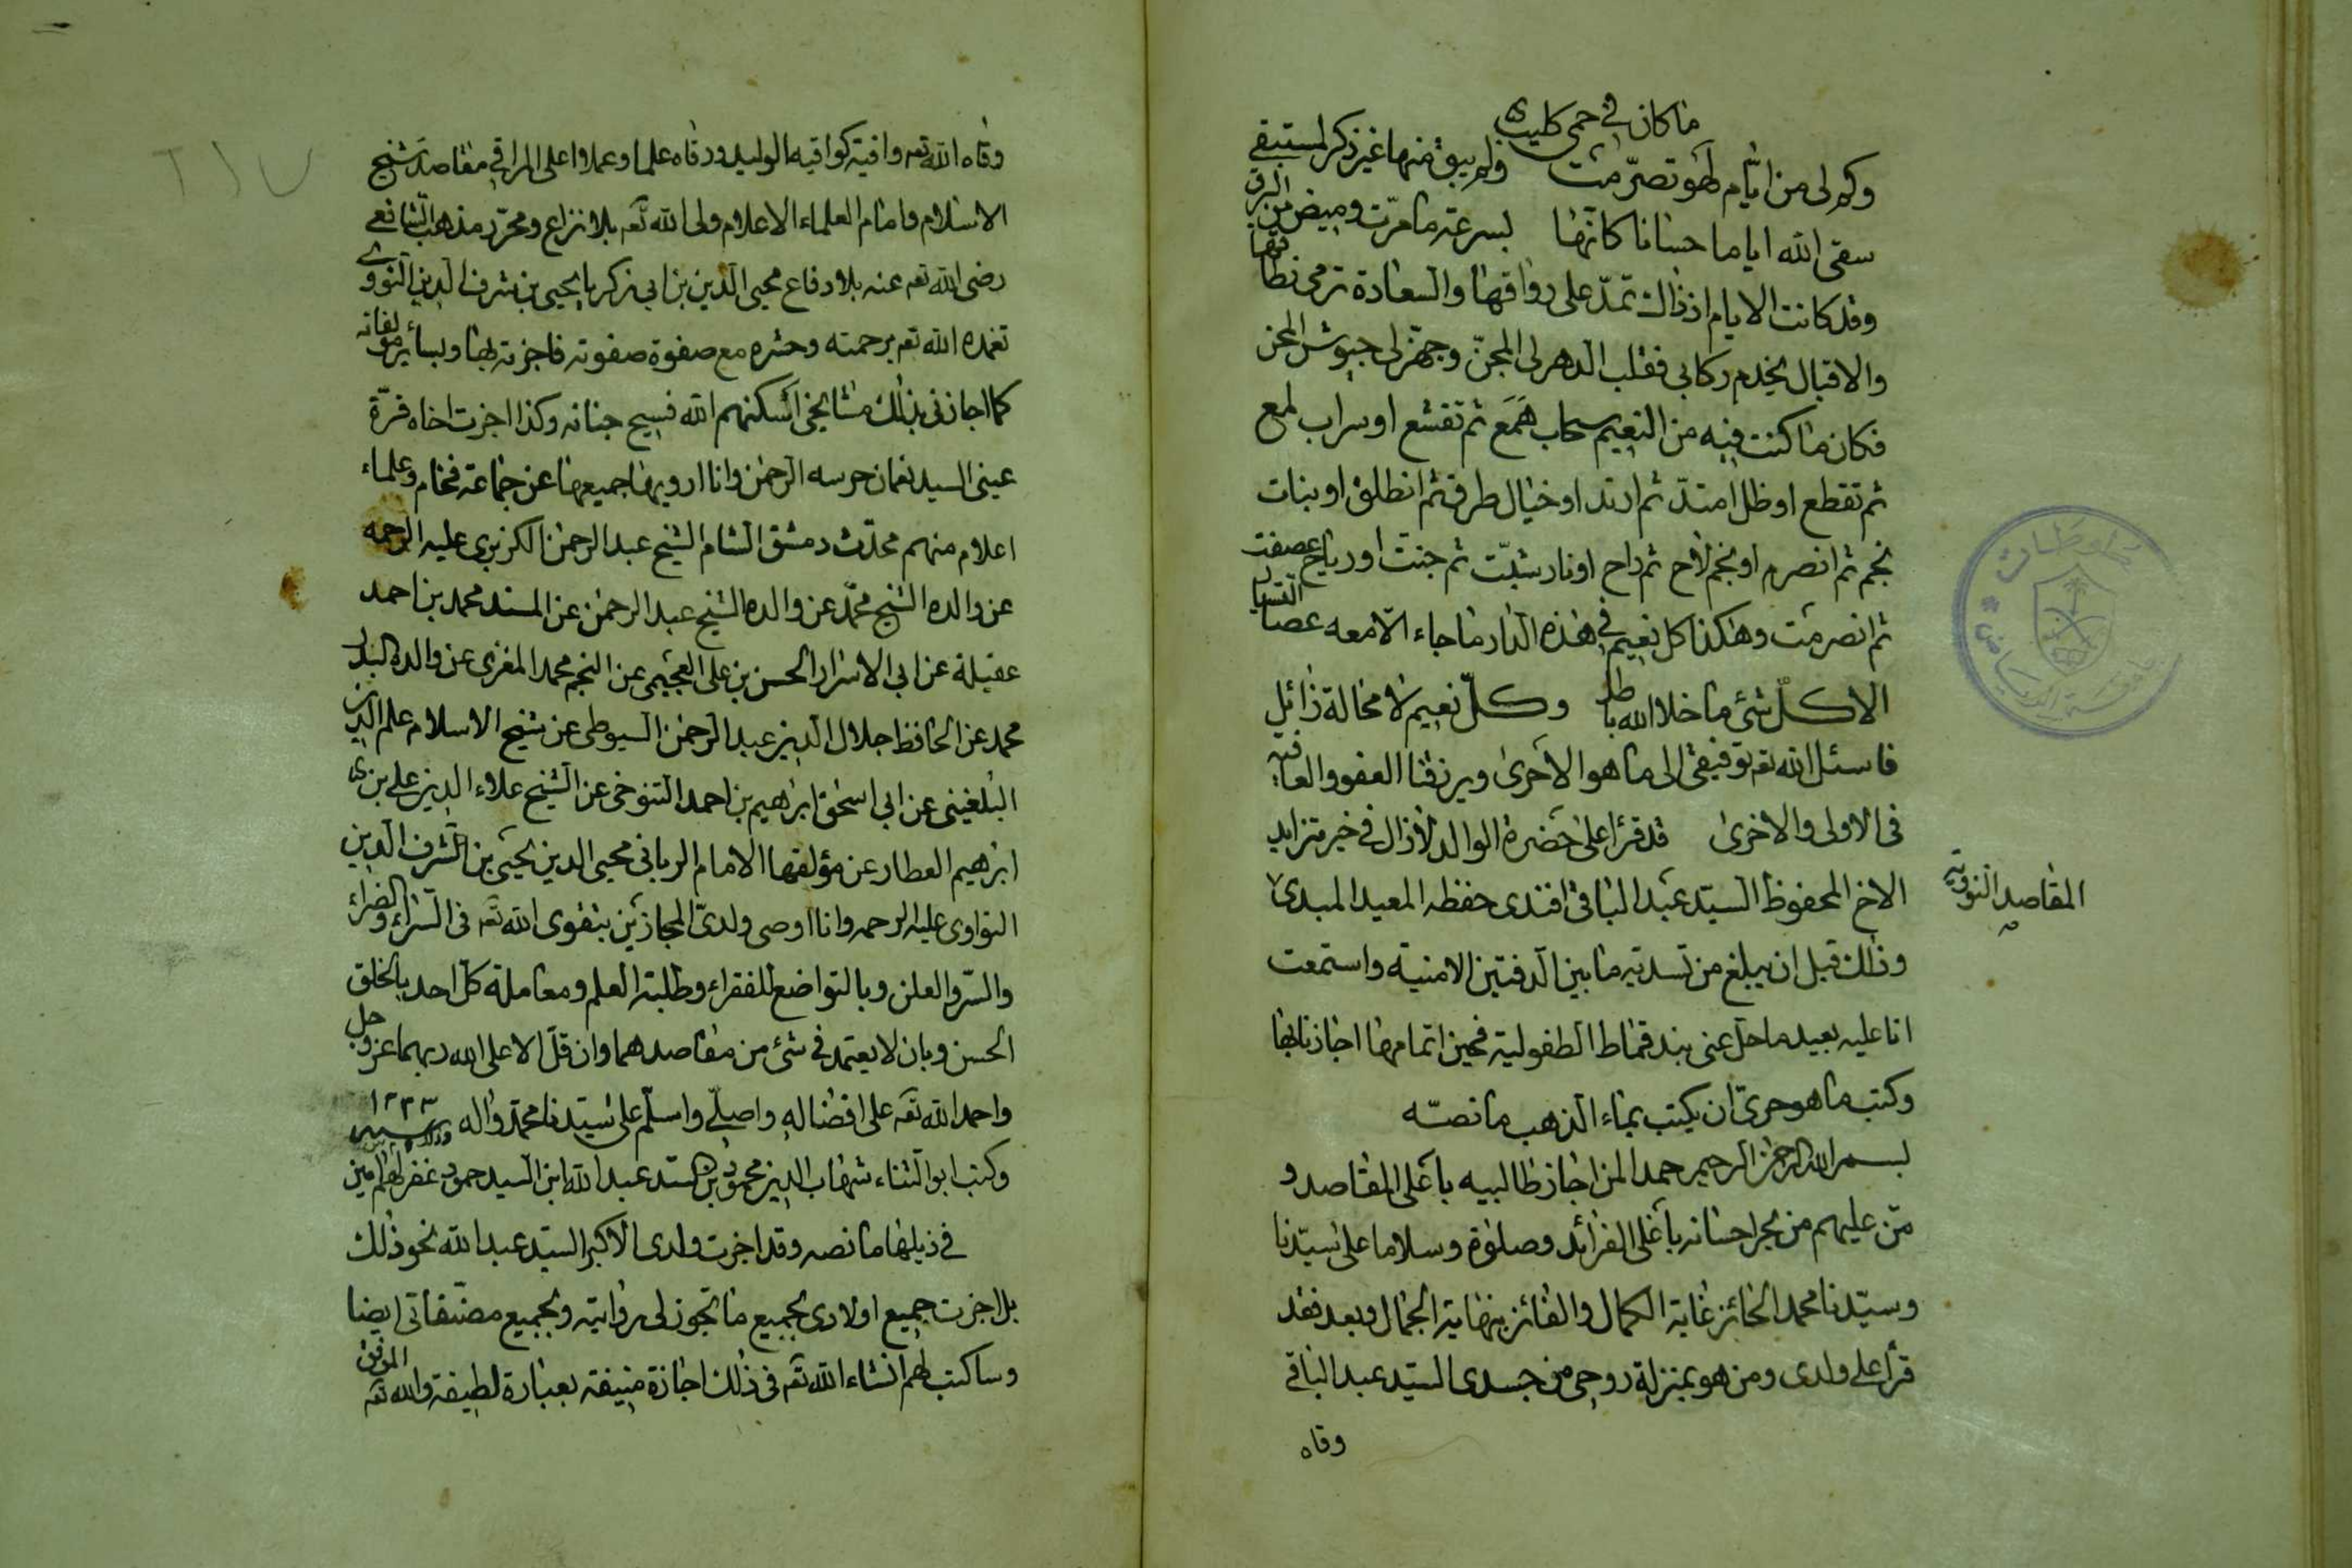 ما كان في حمى كليب
وكم لى من ايام لهو تصرمت ولم يبق منها غير ذكر لمستبقى
سقى الله اياما حسانا كانها بسرعة ما مرت وميض من البرق
وقد كانت الايام اذ ذاك تمد على رواقها والسعادة ترمى نطاقها
والاقبال يخدم ركابى فقلب الدهر لى المجن وجهز لى جيوش المحن
فكان ما كنت فيه من النعيم سحاب همع ثم تقشع او سراب لمع
ثم تقطع او ظل امتد ثم ارتد او خيال طرق ثم انطلق او بنات
نجم ثم انصرم او نجم لاح ثم راح او نار شبت ثم خبت او رياح عصفت
ثم انصرمت وهكذا كل نعيم في هذه الدار ما جاء الا معه عصا التسيار
الا كل شئ ما خلا الله باطل وكل نعيم لا محالة زائل
فاسئل الله تعم توفيقى الى ما هو الاحرى ويرزقنا العفو والعافية
فى الاولى والاخرى قد قرا على حضرة الوالد لازال في خير متزايد
الاخ المحفوظ السيد عبد الباقى افندى حفظه المعيد المبدى
المقاصد النووية
وذلك قبل ان يبلغ من تسديه ما بين الدفتين الامنية واستمعت
انا عليه بعيد ما حل عنى بند قماط الطفولية فحين اتمامها اجازنا بها
وكتب ما هو حرى ان يكتب بماء الذهب ما نصه
بسم الله الرحمن الرحيم حمدا لمن اجاز طالبيه باعلى المقاصد و
من عليهم من بحر احسانه باغلى الفرائد وصلوة وسلاما على سيدنا
وسيدنا محمد الحائز غاية الكمال والفائز بنهاية الجمال وبعد فقد
قرأ على ولدى ومن هو بمنزلة روحى من جسدى السيد عبد الباقى
وقاه
وقاه الله تعم واقية كواقية الوليد ورقاه علما وعملا اعلى المراقى مقاصد شيخ
الاسلام وامام العلماء الاعلام ولى الله تعم بلا نزاع ومحرر مذهب الشافعى
رضى الله تعم عنه بلا دفاع محيى الدين بن ابى زكريا يحيى بن شرف الدين النووى
تغمده الله تعم برحمته وحشره مع صفوة صفوته فاجزته بها وبسائر مؤلفاته
كما اجازنى بذلك مشايخى اسكنهم الله فسيح جنانه وكذا اجزت اخاه قرة
عينى السيد نعمان حرسه الرحمن وانا ارويها جميعها عن جماعة فخام وعلماء
اعلام منهم محدث دمشق الشام الشيخ عبد الرحمن الكزبرى عليه الرحمه
عن والده الشيخ محمد عن والده الشيخ عبد الرحمن عن المسند محمد بن احمد
عقيلة عن ابى الاسرار الحسن بن على العجيمى عن النجم محمد المغزى عن والده البدر
محمد عن الحافظ جلال الدين عبد الرحمن السيوطى عن شيخ الاسلام علم الدين
البلغينى عن ابى اسحق ابرهيم بن احمد التنوخى عن الشيخ علاء الدين على بن
ابرهيم العطار عن مؤلفها الامام الربانى محيى الدين يحيى بن الشرف الدين
النواوى عليه الرحمه وانا اوصى ولدى المجازين بتقوى الله تعم فى السراء والضراء
والسر والعلن وبالتواضع للفقراء وطلبة العلم ومعاملة كل احد بالخلق
الحسن وبان لا يعتمد في شئ من مقاصدهما وان قل الا على الله ربهما عز وجل
واحمد الله تعم على افضاله واصلى واسلم على سيدنا محمد واله
وكتب ابو الثناء شهاب الدين محمود بن السيد عبد الله ابن السيد محمود غفر لهم امين
في ذيلها ما نصه وقد اجزت ولدى الاكبر السيد عبد الله نحو ذلك
بل اجزت جميع اولادى بجميع ما تجوز لى روايته وبجميع مصنفاتى ايضا
وساكتب لهم انشاء الله تعم فى ذلك اجازة منيفة بعبارة لطيفة والله تعم الموفق